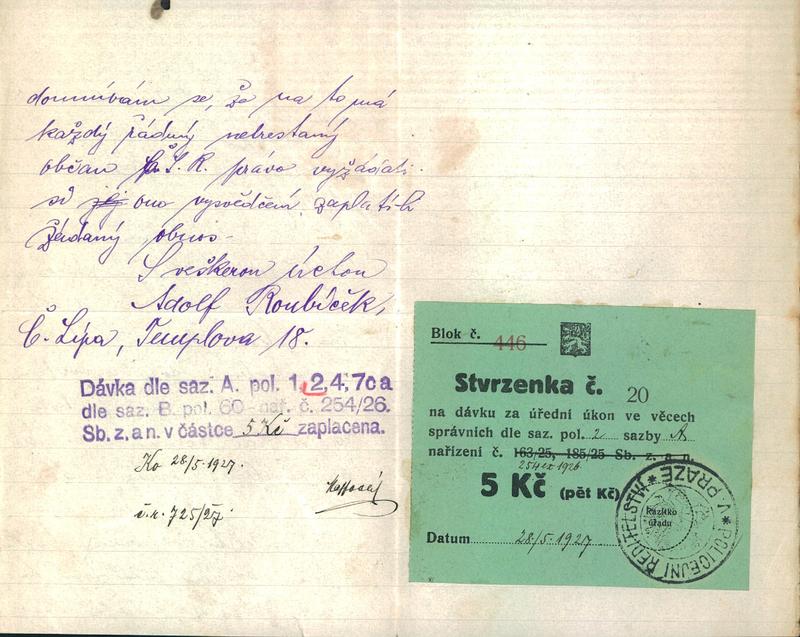 domnívám se, že na to má
každý řádný netrestaný
občan Č.S.R. právo vyžádati
si ono vysvědčení, zaplatí-li
žádaný obnos -
S veškerou úctou
Adolf Roubíček,
Č. Lípa, Templova 18.
Dávka dle saz. A. pol. 1, 2, 4, 7c a
dle saz. B. pol. 60 nař. č. 254/26.
Sb. z. a n. v částce 5 Kč zaplacena.
Ko 28/5. 1927.
č. r. 725/27.
Blok č. 446
Stvrzenka č. 20
na dávku za úřední úkon ve věcech
správních dle saz. pol. 2 sazby A
nařízení č. 163/25, 185/25 Sb. z. a n.
254 ex 1926
5 Kč (pět Kč)
Datum 28/5. 1927
Razítko
úřadu
POLICEJNÍ ŘEDITELSTVÍ * V PRAZE *